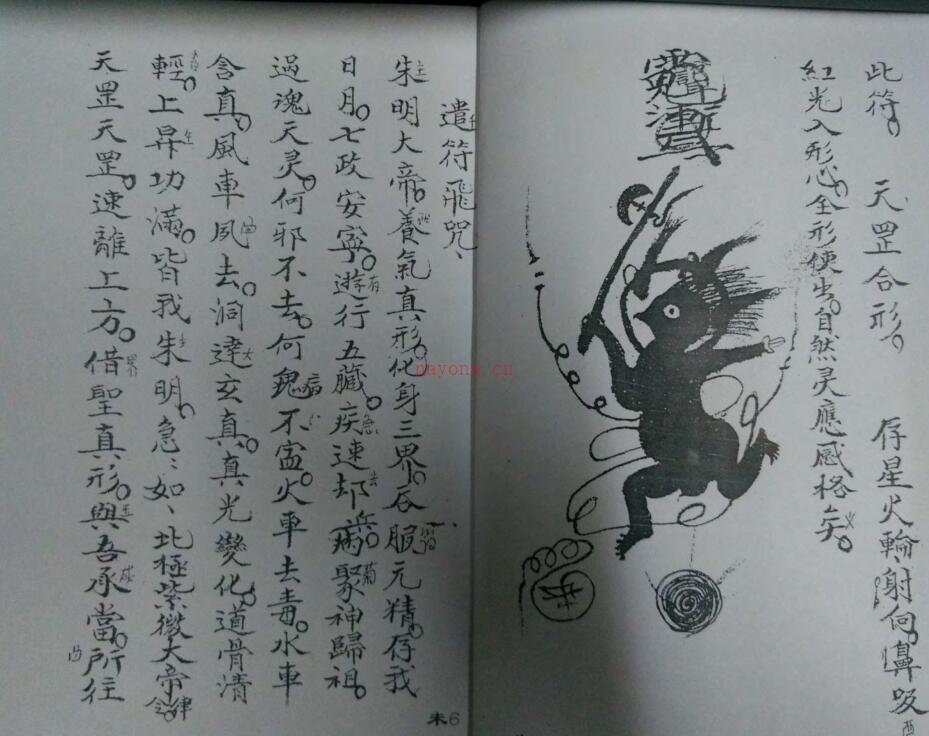 此符。天罡合形。存星火輪射向。鼻吸
紅光入形心。全形使出。自然灵應感格矣。
遣符飛咒、
朱明大帝。養氣真形。化身三界。吞服元精。存我
日月。七政安寧。遊行五臟。疾速却兵。病聚神歸祖。
過魂天灵。何邪不去。何鬼不寍。火車去毒。水車
含真。風車夙去。洞達玄真。真光變化。道骨清
輕。上昇功滿。皆我朱明。急、如、北極紫微大帝律令。
天罡天罡。速離上方。借聖真形。與吾承當。所往
未6
nayona.cn